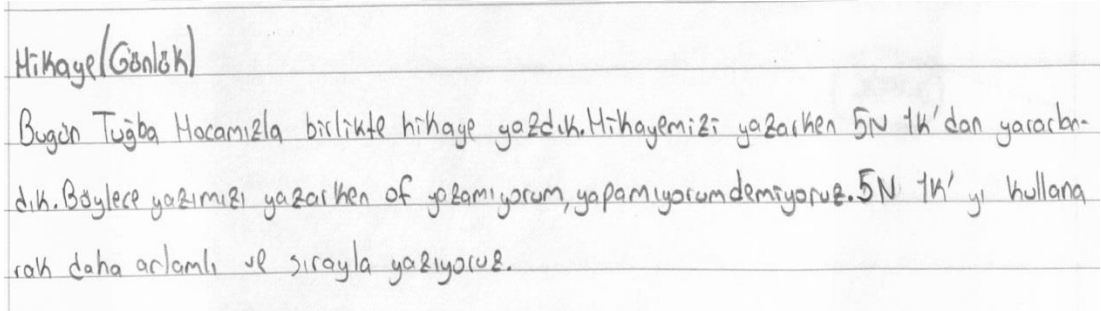 Hikaye (Günlük)
Bugün Tuğba Hocamızla birlikte hikaye yazdık. Hikayemizi yazarken 5N 1K'dan yararlan-
dık. Böylece yazımızı yazarken of yazamıyorum, yapamıyorum demiyoruz. 5N 1K' yı kullana
rak daha anlamlı ve sırayla yazıyoruz.